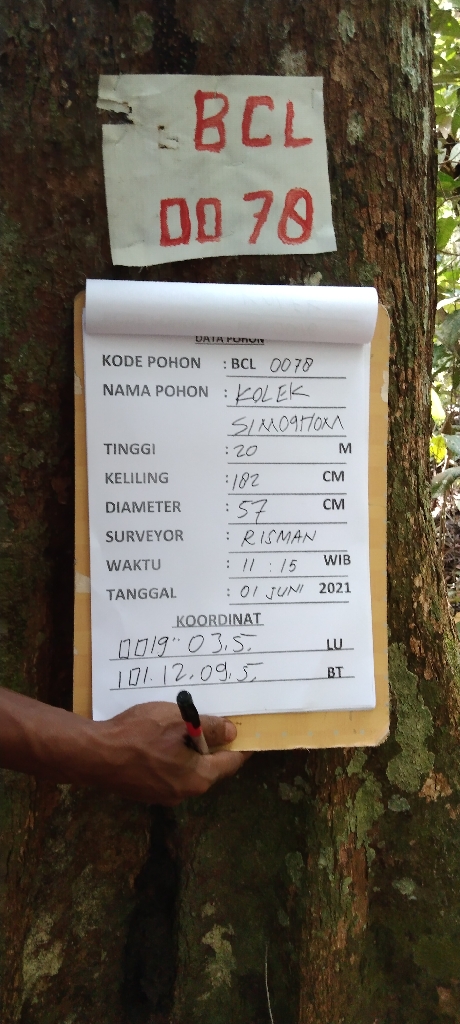 BCL
0078
DATA POHON
KODE POHON : BCL 0078
NAMA POHON : KOLEK
SIMOGHOM
TINGGI : 20 M
KELILING : 182 CM
DIAMETER : 57 CM
SURVEYOR : RISMAN
WAKTU : 11 : 15 WIB
TANGGAL : 01 JUNI 2021
KOORDINAT
0019" 03.5. LU
101.12.09.5. BT